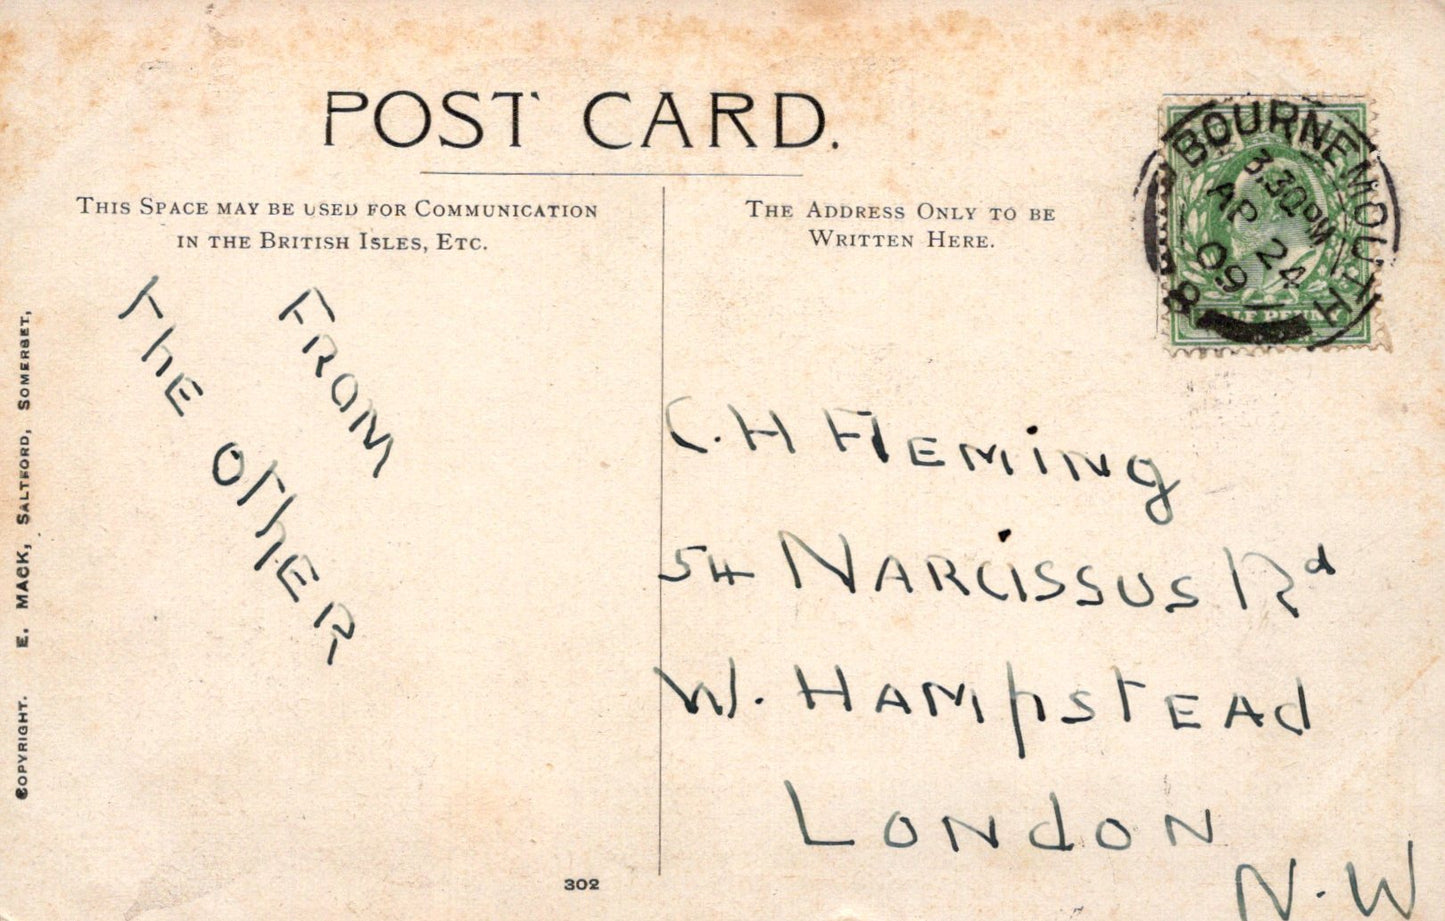 POST CARD.
THIS SPACE MAY BE USED FOR COMMUNICATION
IN THE BRITISH ISLES, ETC.
THE ADDRESS ONLY TO BE
WRITTEN HERE.
BOURNEMOUTH
3.30PM
AP 24
09
8
HALF PENNY
FROM
ThE OThER
C.H FlEMiNg
54 NARCiSSUS Rd
W. HAMpSTEAd
LONdON
N.W
COPYRIGHT. E. MACK, SALTFORD, SOMERSET,
302